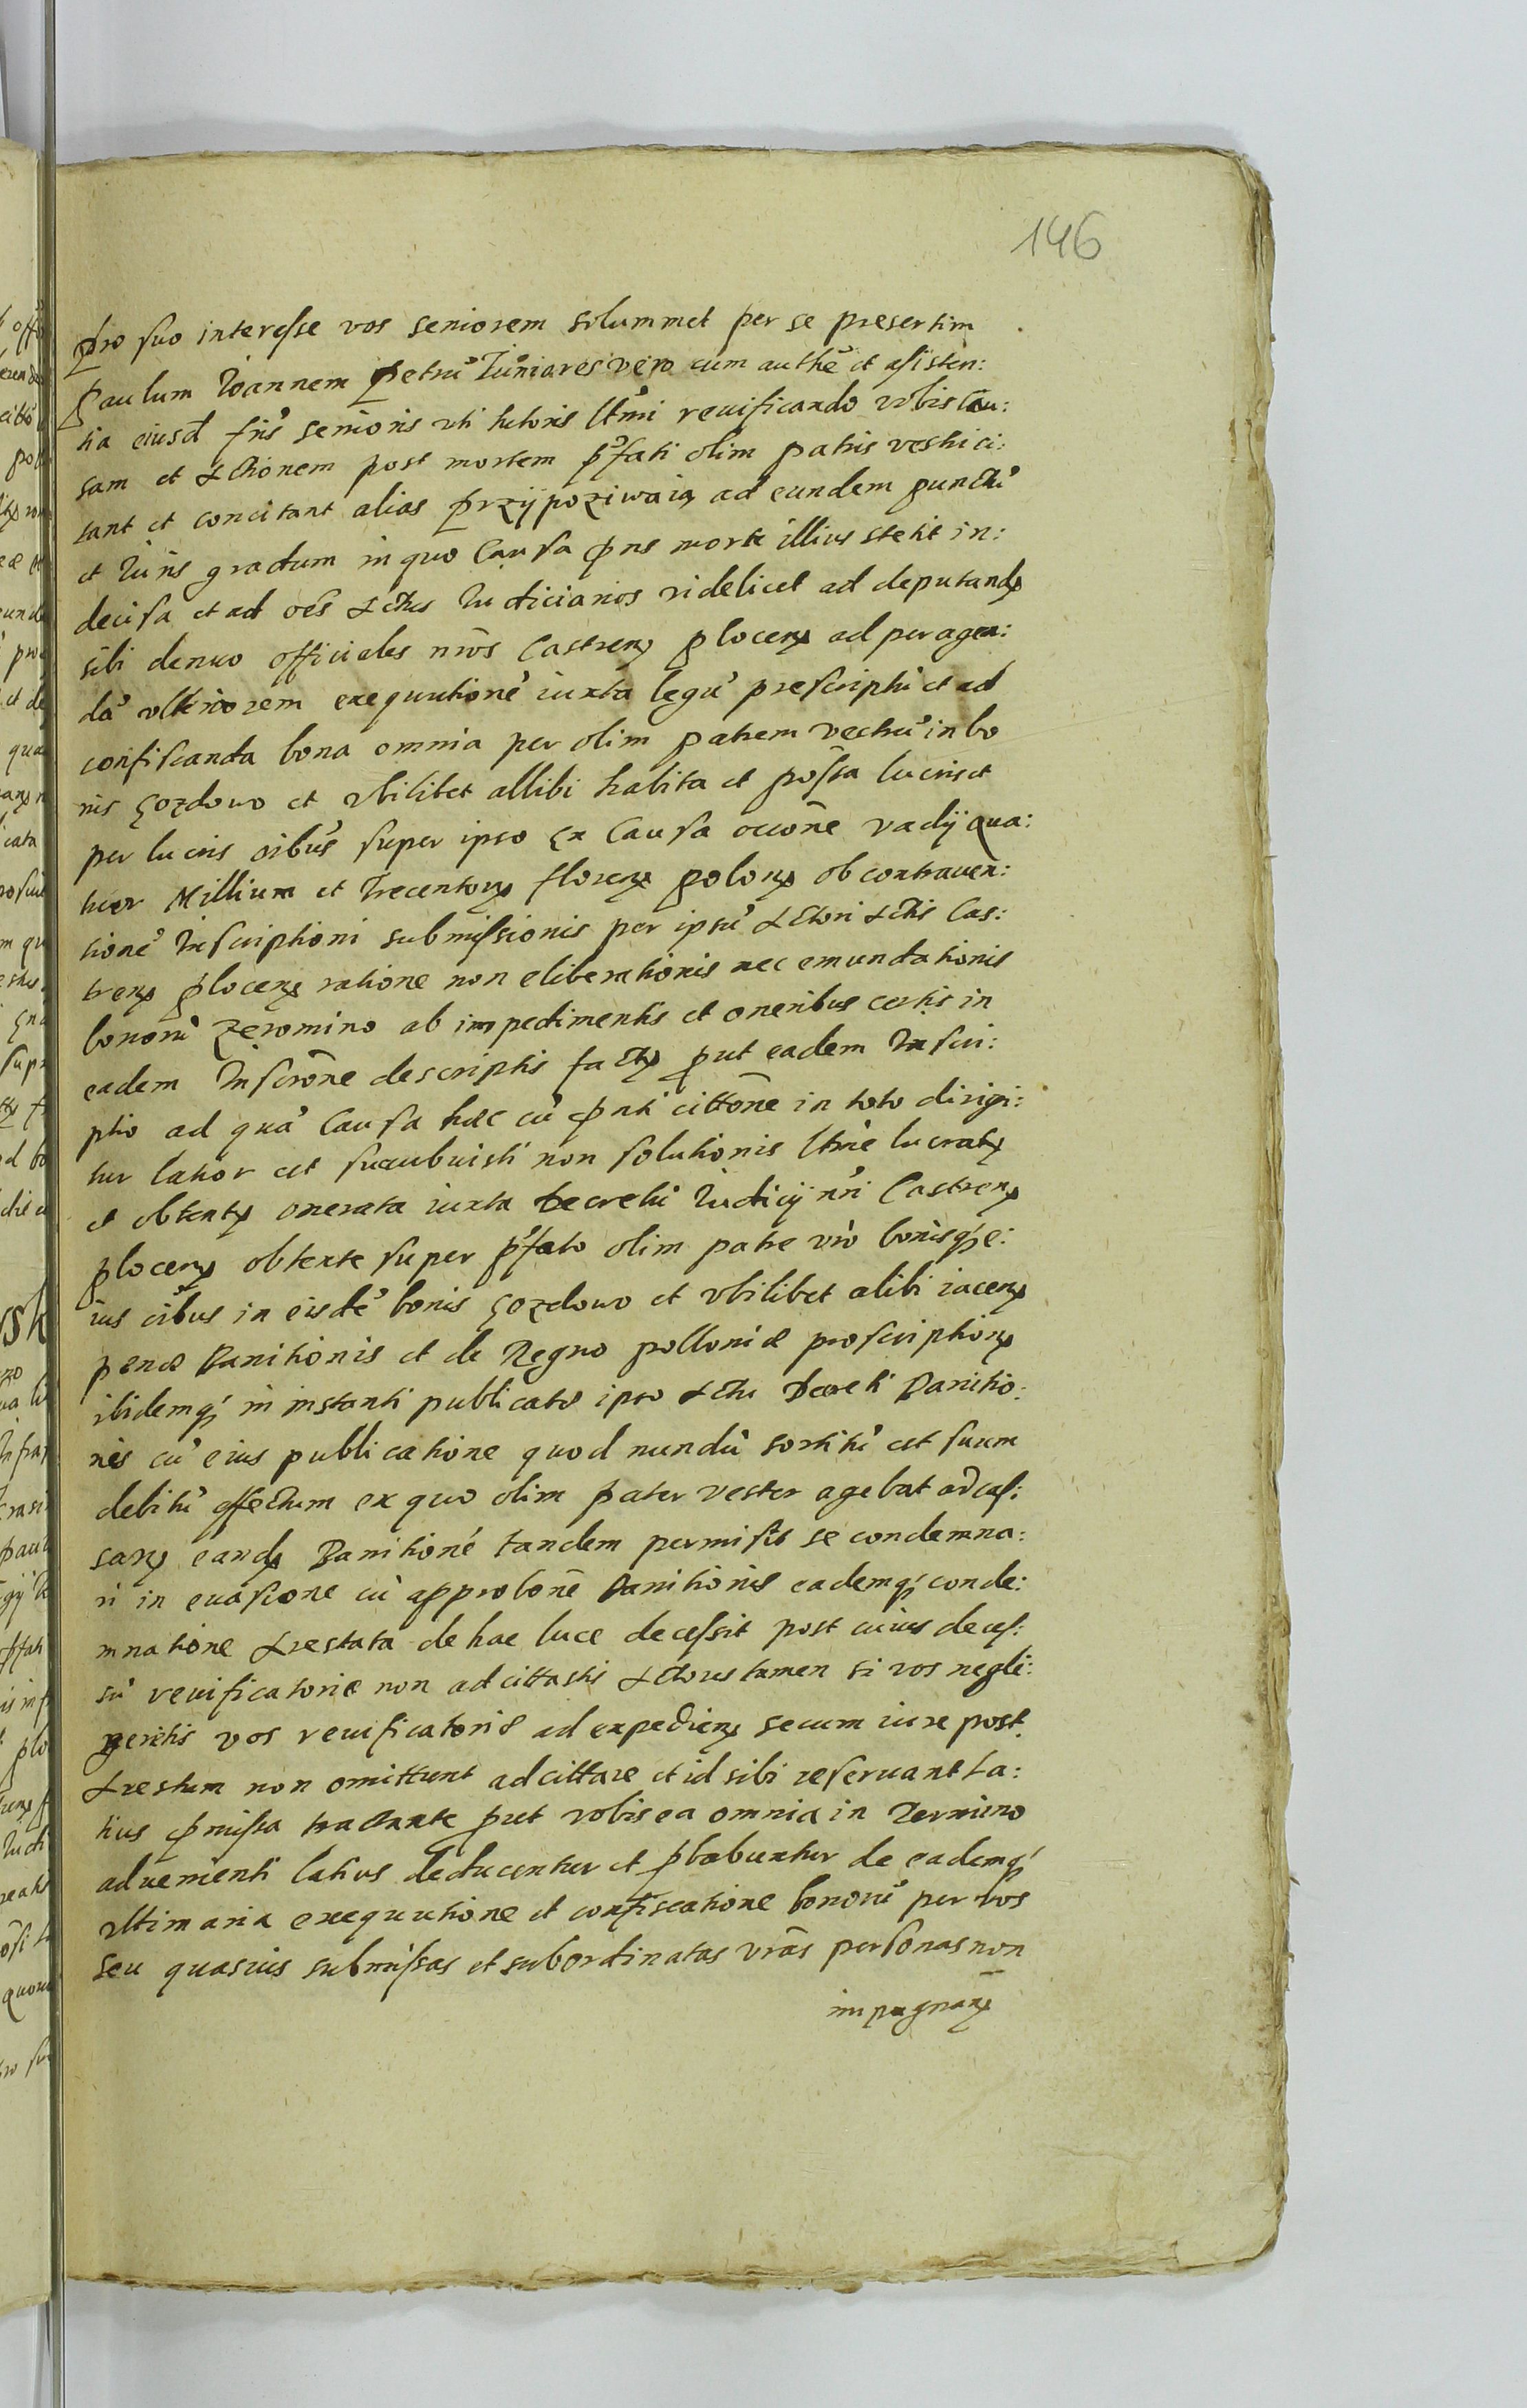 146
pro suo interesse vos seniorem solummet per se presertim
Paulum Joannem Petrũ Juniores vero cum authẽ et assisten:
tia eiusd fris senioris uti tutoris ltmi reuificando vobis Cau:
sam et Actionem post mortem pfati olim patris vestri ci:
tant et concitant alias przijpoziwaią ad eundem punctũ
et Juris gradum in quo Causa pns morte illius stetit in:
decisa et ad oẽs Actus Judiciarios videlicet ad deputandȝ
sibi denuo officiales nrõs Castrenȝ plocenȝ ad peragen:
dã ulteriorem exequutionẽ iuxta legũ prescriptũ et ad
confiscanda bona omnia per olim patrem vestrũ in bo
nis Gozdowo et ubilibet allibi habita et possa lucris et
per lucris oibus super ipso Ex Causa occone vadij qua:
tuor Millium et Trecentorȝ florenȝ polonȝ ob contrauen:
tionẽ Inscriptioni submissionis per ipsũ Actori Actis Cas:
trenȝ plocenȝ ratione non eliberationis nec emundationis
bonorũ Zeromino ab impedimentis et oneribus certis in
eadem Inscrone descriptis factȝ put eadem Inscri:
ptio ad quã Causa hæc cũ pnti cittone in toto dirigi:
tur latior est succubuisti non solutionis ltmæ lucratȝ
et obtentȝ onerata iuxta decretũ Judicij nri Castrenȝ
plocenȝ obtente super pfato olim patre vro bonisqȝ e:
ius oibus in eisdẽ bonis Gozdowo et ubilibet alibi iacenȝ
penæ Banitionis et de Regno polloniæ proscriptionȝ
ibidemqȝ in instanti publicatæ ipso Actu Decreti Banitio:
nis cũ eius publicatione quod nundũ sortitũ est suum
debitũ effectum ex quo olim pater vester agebat ad cas:
sanȝ eandȝ Banitionẽ tandem permisit se condemna:
ri in euasione cũ approbone Banitionis eademqȝ conde:
mnatione Arestata de hac luce decessit post cuius deces:
sũ reuificatorie non adcittastis Actores tamen si vos negli:
geritis vos reuificatoriæ ad expedienȝ secum iure post
Arestum non omittunt adcittare et id sibi reseruant la:
tius pmissa tractante put vobis ea omnia in Termino
aduenienti latius deducentur et pbabuntur de eademqȝ
ultimaria exequutione et confiscatione bonorũ per vos
seu quasuis submissas et subordinatas vrãs personas non
impugnanȝ